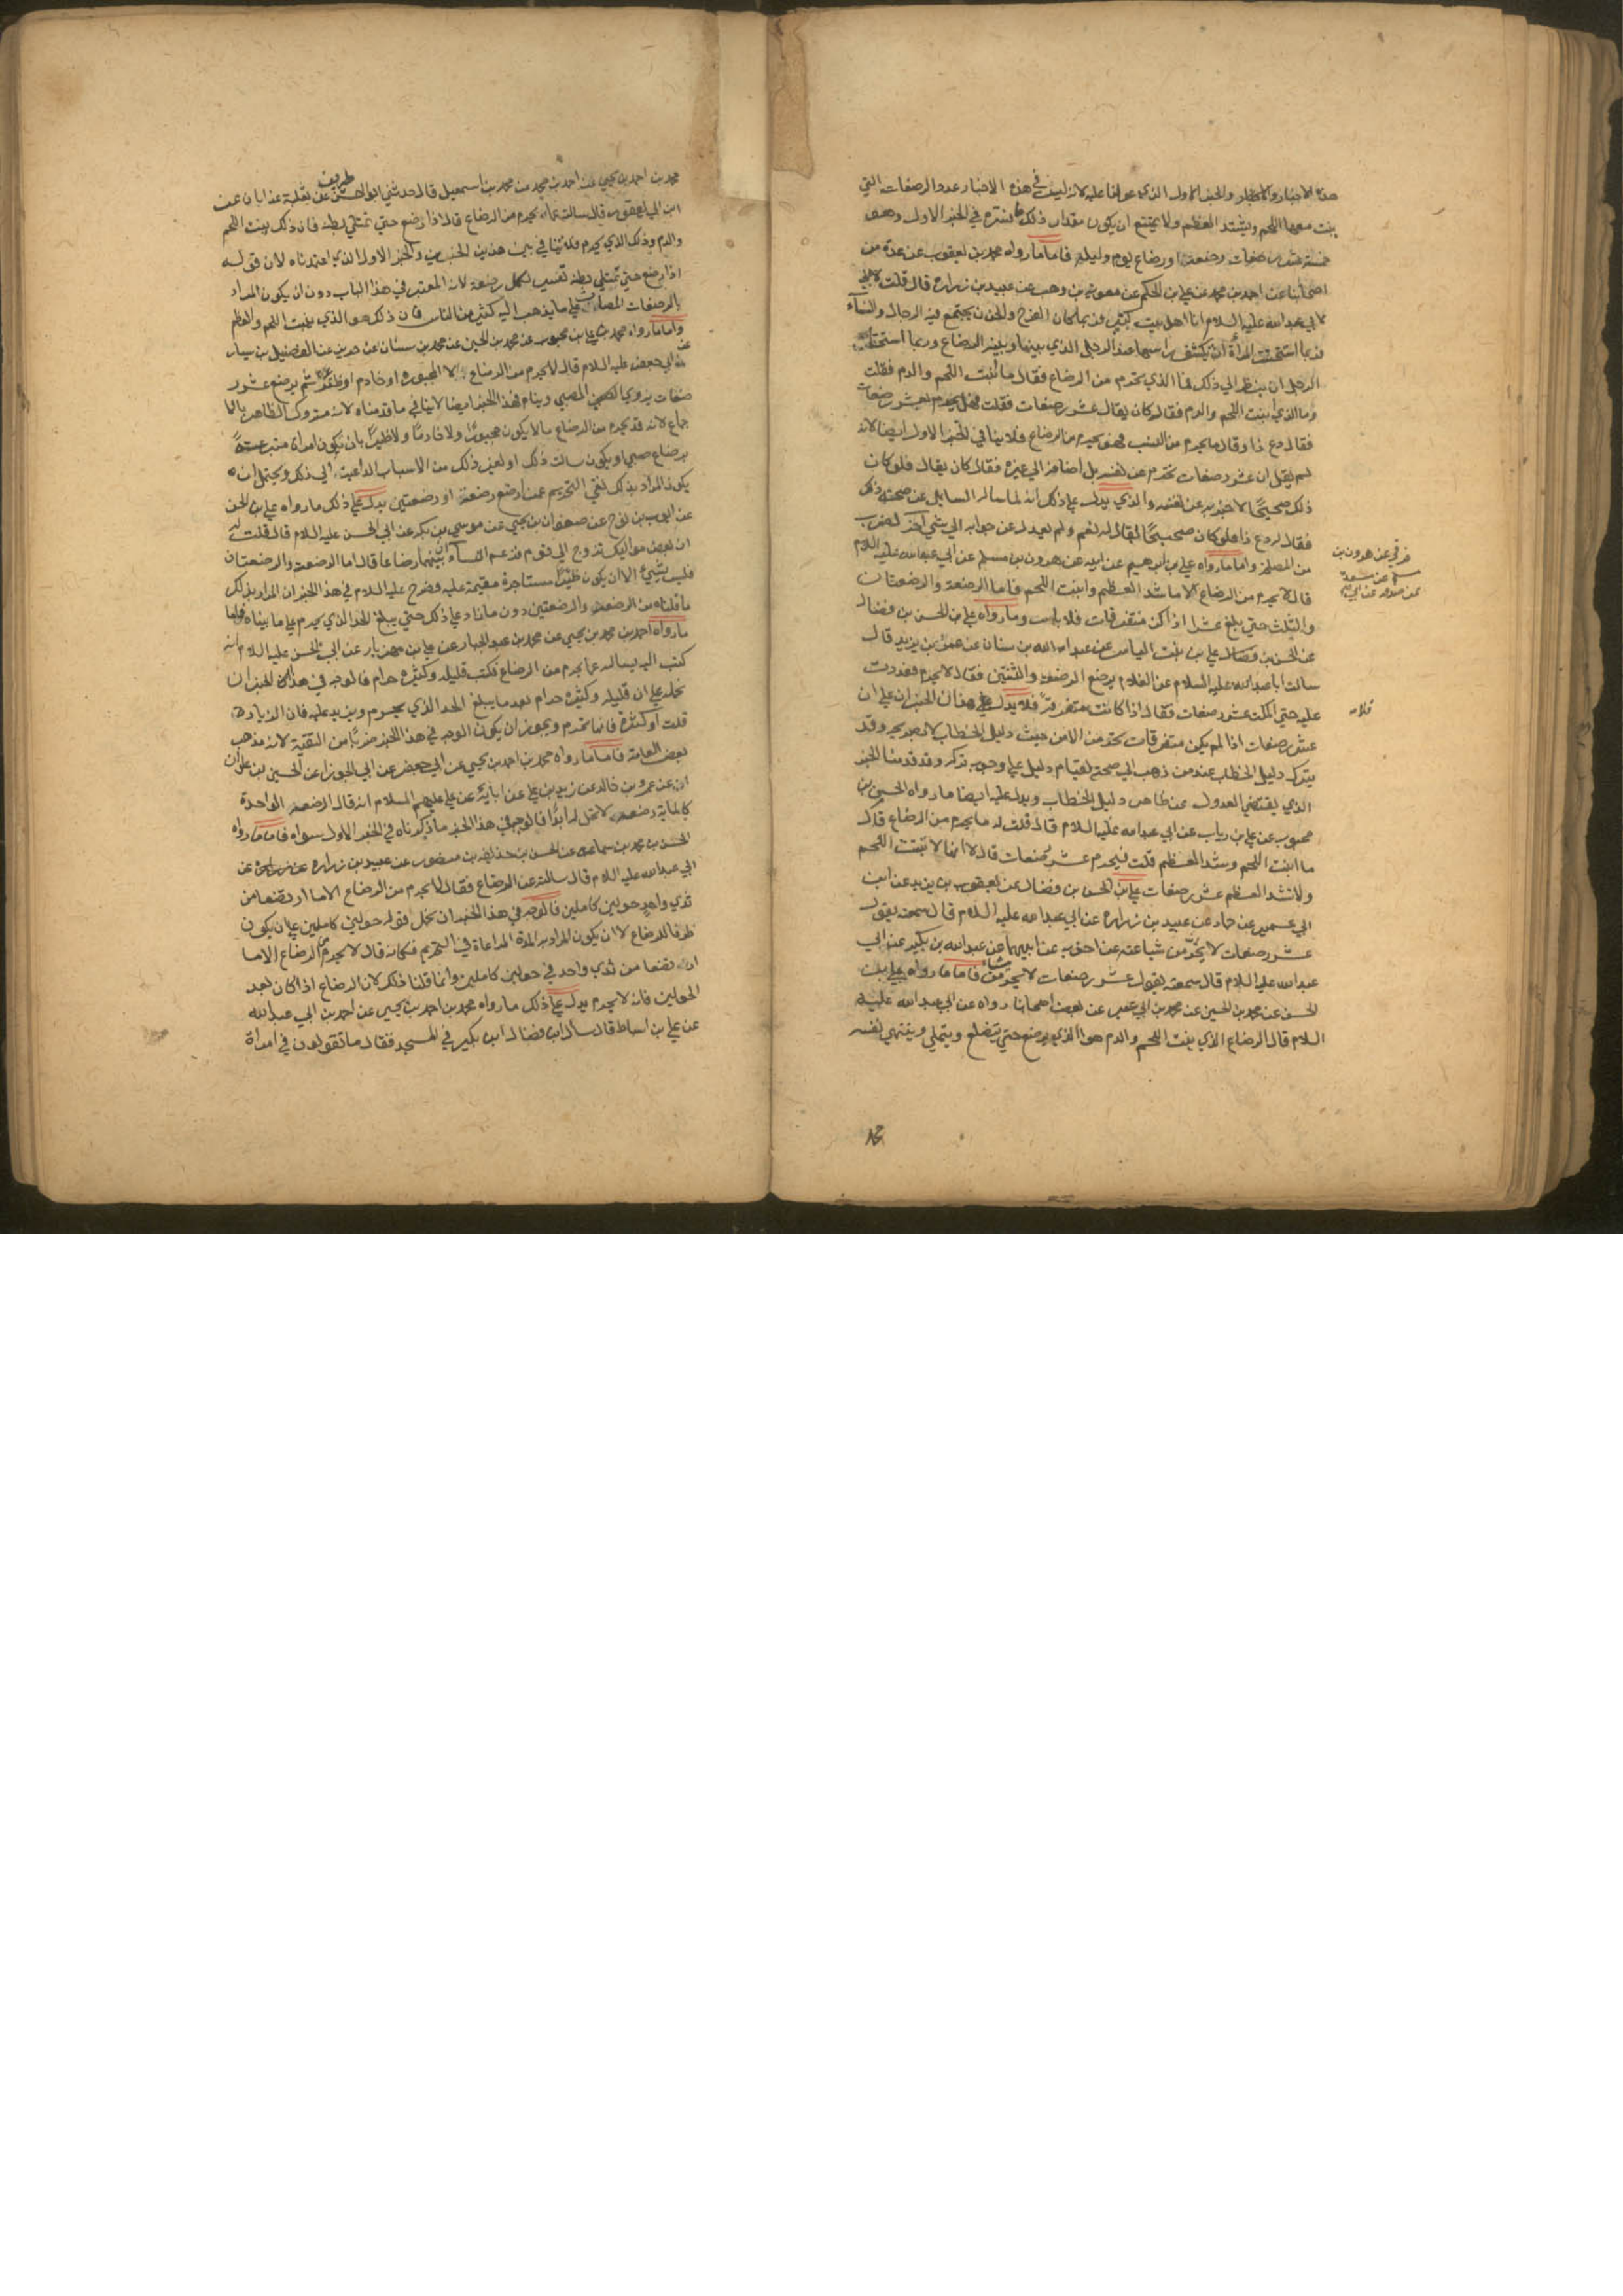 هذه الاخبار والاخبار والخبر الاول الذي عولنا عليه لانه ليس في هذه الاخبار عدد الرضعات التي
ينبت معها اللحم ويشتد العظم ولا يمتنع ان يكون مقدار ذلك ما فسره في الخبر الاول وهو
خمسة عشر رضعات رضعة او رضاع يوم وليلة فاما ما رواه محمد بن يعقوب عن عدة من
اصحابنا عن احمد بن محمد عن علي بن الحكم عن معوية بن وهب عن عبيد بن زرارة قال قلت
لابي عبد الله عليه السلام انا اهل بيت كبير فربما كان الفرح والحزن يجتمع فيه الرجال والنساء
فربما استحيت المرأة ان تكشف راسها عند الرجل الذي بينها وبينه الرضاع وربما استخف
الرجل ان ينظر الي ذلك فما الذي يحرم من الرضاع فقال ما انبت اللحم والدم فقلت
وما الذي ينبت اللحم والدم فقال كان يقال عشر رضعات فقلت فهل يحرم بعشر رضعات
فقال دع ذا وقال ما يحرم من النسب فهو يحرم من الرضاع فلا ينافي الخبر الاول ايضا لانه
لم يقل ان عشر رضعات تحرم عن نفسه بل اضافه الي غيره فقال كان يقال فلو كان
ذلك صحيحًا لاخبر به عن نفسه والذي يدل علي ذلك انه لما ساله السايل عن صحة ذلك
فقال له دع ذا فلو كان صحيحًا لقال له نعم ولم يعدل عن جوابه الي شيء آخر لضرب
من المصلحة واما ما رواه علي بن ابرهيم عن ابيه عن هرون بن مسلم عن ابي عبد الله عليه السلام
قال لا يحرم من الرضاع الا ما شد العظم وانبت اللحم فاما الرضعة والرضعتان
والثلث حتي بلغ عشرا اذا كن متفرقات فلا باس وما رواه علي بن الحسن بن فضال
عن الحسن بن فضال علي بن بنت الياس عن عبد الله بن سنان عن عمر بن يزيد قال
سالت ابا عبد الله عليه السلام عن الغلام يرضع الرضعة والثنتين فقال لا يحرم فعددت
عليه حتي اكملت عشر رضعات فقال اذا كانت متفرقة فلا يدل هذان الخبران علي ان
عشر رضعات اذا لم يكن متفرقات يحرمن الا من حيث دليل الخطاب لا بصريحه وقد
يترك دليل الخطاب عند من ذهب الي صحته لقيام دليل علي وجوب تركه وقد قدمنا الخبر
الذي يقتضي العدول عن ظاهر دليل الخطاب ويدل عليه ايضا ما رواه الحسن بن
محبوب عن علي بن رياب عن ابي عبد الله عليه السلام قال قلت له ما يحرم من الرضاع قال
ما انبت اللحم وشد العظم قلت فيحرم عشر رضعات قال لا انها لا تنبت اللحم
ولا تشد العظم عشر رضعات علي بن الحسن بن فضال عن يعقوب بن يزيد عن ابن
ابي عمير عن حماد عن عبيد بن زرارة عن ابي عبد الله عليه السلام قال سمعته يقول
عشر رضعات لا يحرمن شيا عنه عن اخويه عن ابيهما عن عبد الله بن بكير عن ابي
عبد الله عليه السلام قال سمعته يقول عشر رضعات لا يحرمن شيا فاما ما رواه علي بن
الحسن عن محمد بن الحسين عن محمد بن ابي عمير عن بعض اصحابنا رواه عن ابي عبد الله عليه
السلام قال الرضاع الذي ينبت اللحم والدم هو الذي يرضع حتي يتضلع ويتملي وينتهي نفسه
عن هرون بن
مسلم عن مسعدة
محمد بن احمد بن يحيي عن احمد بن محمد عن محمد بن اسمعيل قال حدثني ابو الحسن ظريف عن ثعلبة عن ابان عن
ابن ابي يعفور قال سالته عما يحرم من الرضاع قال اذا رضع حتي تمتلي بطنه فان ذلك ينبت اللحم
والدم وذلك الذي يحرم فلا تنافي بين هذين الخبرين والخبر الاول الذي اعتمدناه لان قوله
اذا رضع حتي تمتلي بطنه تفسير لكل رضعة لانه المعتبر في هذا الباب دون ان يكون المراد
بالرضعات المصات علي ما يذهب اليه كثير من الناس فان ذلك هو الذي ينبت اللحم والعظم
واما ما رواه محمد بن علي بن محبوب عن محمد بن الحسين عن محمد بن سنان عن حريز عن الفضيل بن يسار
عن ابي جعفر عليه السلام قال لا يحرم من الرضاع الا المجبورة او خادم او ظئر ثم يرضع عشر
رضعات يروي الصبي وينام فهذا الخبر ايضا لا ينافي ما قدمناه لانه متروك الظاهر بالا
جماع لانه قد يحرم من الرضاع ما لا يكون مجبورًا ولا خادمًا ولا ظئرًا بان يكون امراة متبرعة
برضاع صبي او يكون سالت ذلك او لغير ذلك من الاسباب الداعية الي ذلك ويحتمل ان
يكون المراد بذلك نفي التحريم عمن ارضع رضعة او رضعتين يدل علي ذلك ما رواه علي بن الحسن
عن ايوب بن نوح عن صفوان بن يحيي عن موسي بن بكر عن ابي الحسن عليه السلام قال قلت له
ان بعض مواليك تزوج الي قوم فزعم النساء ان بينهما رضاعا قال اما الرضعة والرضعتان
فليس بشيء الا ان يكون ظئرًا مستاجرة مقيمة عليه فصرح عليه السلام في هذا الخبر ان المراد بذلك
ما قلناه من الرضعة والرضعتين دون ما زاد علي ذلك حتي يبلغ الحد الذي يحرم علي ما بيناه فاما
ما رواه احمد بن محمد بن يحيي عن محمد بن عبد الجبار عن علي بن مهزيار عن ابي الحسن عليه السلام انه
كتب اليه يساله عما يحرم من الرضاع فكتب قليله وكثيره حرام فالوجه في هذا الخبر ان
نحمله علي ان قليله وكثيره حرام بعد ما يبلغ الحد الذي يحرم ويزيد عليه فان الزيادة
قلت او كثرت فانها تحرم ويجوز ان يكون الوجه في هذا الخبر ضربًا من التقية لانه مذهب
بعض العامة فاما ما رواه محمد بن احمد بن يحيي عن ابي جعفر عن ابي الجوزا عن الحسين بن علوان
عن عمرو بن خالد عن زيد بن علي عن ابائه عن علي عليهم السلام انه قال الرضعة الواحدة
كالماية رضعة لا تحل له ابدًا فالوجه في هذا الخبر ما ذكرناه في الخبر الاول سواه فاما ما رواه
الحسن بن محمد بن سماعة عن الحسن بن حذيفة بن منصور عن عبيد بن زرارة عن زرارة عن
ابي عبد الله عليه السلام قال سالته عن الرضاع فقال لا يحرم من الرضاع الا ما ارتضعا من
ثدي واحد حولين كاملين فالوجه في هذا الخبر ان نحمل قوله حولين كاملين علي ان يكون
ظرفا للرضاع لا ان يكون المراد به المدة المراعاة في التحريم فكانه قال لا يحرم من الرضاع الا ما
ارتضعا من ثدي واحد في حولين كاملين وانما قلنا ذلك لان الرضاع اذا كان بعد
الحولين فانه لا يحرم يدل علي ذلك ما رواه محمد بن احمد بن يحيي عن احمد بن ابي عبد الله
عن علي بن اسباط قال سال ابن فضال ابن بكير في المسجد فقال ما تقولون في امراة